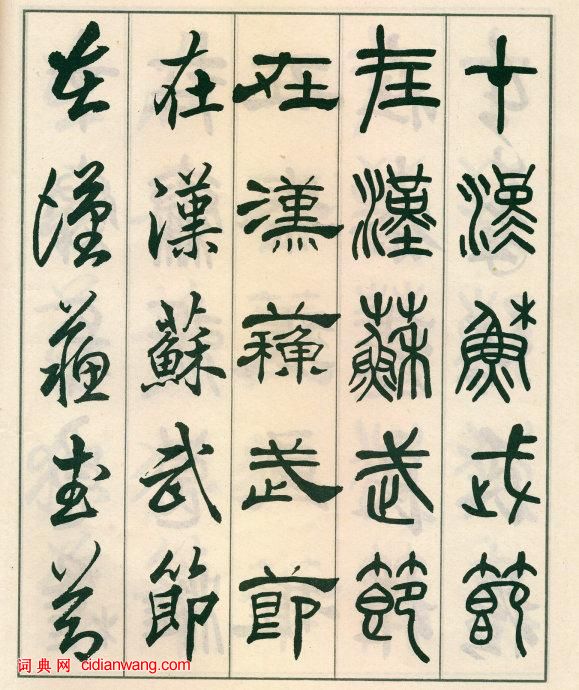 在漢蘇武節
在漢蘇武節
在漢蘇武節
在漢蘇武節
在漢蘇武節
词典网 cidianwang.com